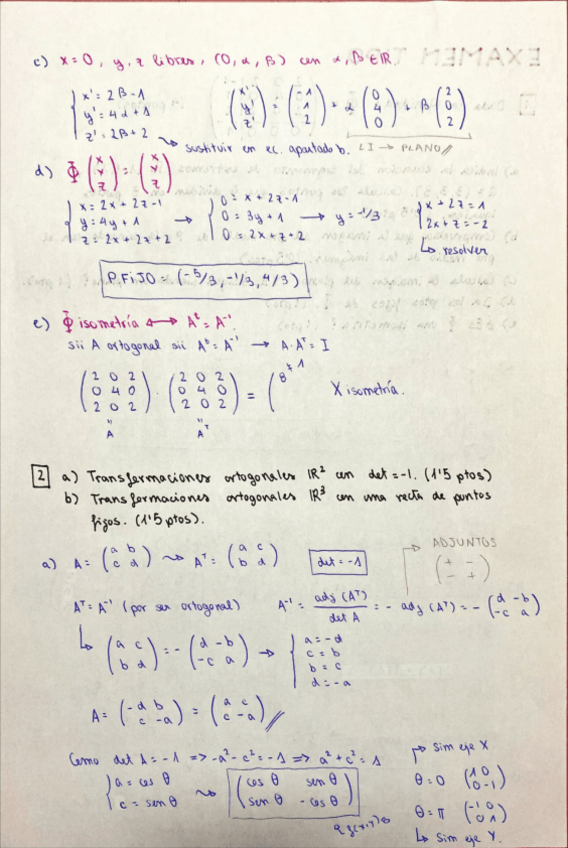 c) x=0, y, z libres, (0, α, β) con α, β ∈ IR.
{ x' = 2β-1
y' = 4α+1
z' = 2β+2
(x' y' z') = (-1 1 2) + α (0 4 0) + β (2 0 2)
↝ sustituir en ec. apartado b. LI → PLANO //
d) Φ (x y z) = (x y z)
{ x = 2x + 2z-1
y = 4y+1
z = 2x+2z+2
→ { 0 = x+2z-1
0 = 3y+1
0 = 2x+z+2
→ y = -1/3
{ x+2z=1
2x+z=-2
↳ resolver
P.FIJO = (-5/3, -1/3, 4/3)
e) Φ isometría ↔ Aᵗ = A⁻¹.
sii A ortogonal sii Aᵗ = A⁻¹ → A·Aᵀ = I
(2 0 2
0 4 0
2 0 2) · (2 0 2
0 4 0
2 0 2) = (8 ≠ 1
X isometría.
" A " Aᵀ
2 a) Transformaciones ortogonales IR² con det = -1. (1'5 ptos)
b) Transformaciones ortogonales IR³ con una recta de puntos
fijos. (1'5 ptos).
ADJUNTOS
(+ -
- +)
a) A = (a b
c d) ↝ Aᵀ = (a c
b d) det = -1
Aᵀ = A⁻¹ (por ser ortogonal) A⁻¹ = adj (Aᵀ) / det A = - adj (Aᵀ) = - (d -b
-c a)
↳ (a c
b d) = - (d -b
-c a) → { a = -d
c = b
b = c
d = -a
A = (-d b
c -a) = (a c
c -a) //
Como det A = -1 => -a² - c² = -1 => a² + c² = 1
{ a = cos θ
c = sen θ ↝ (cos θ sen θ
sen θ - cos θ)
↱ Sim eje X
θ = 0 (1 0
0 -1)
θ = π (-1 0
0 1)
↳ Sim eje Y.